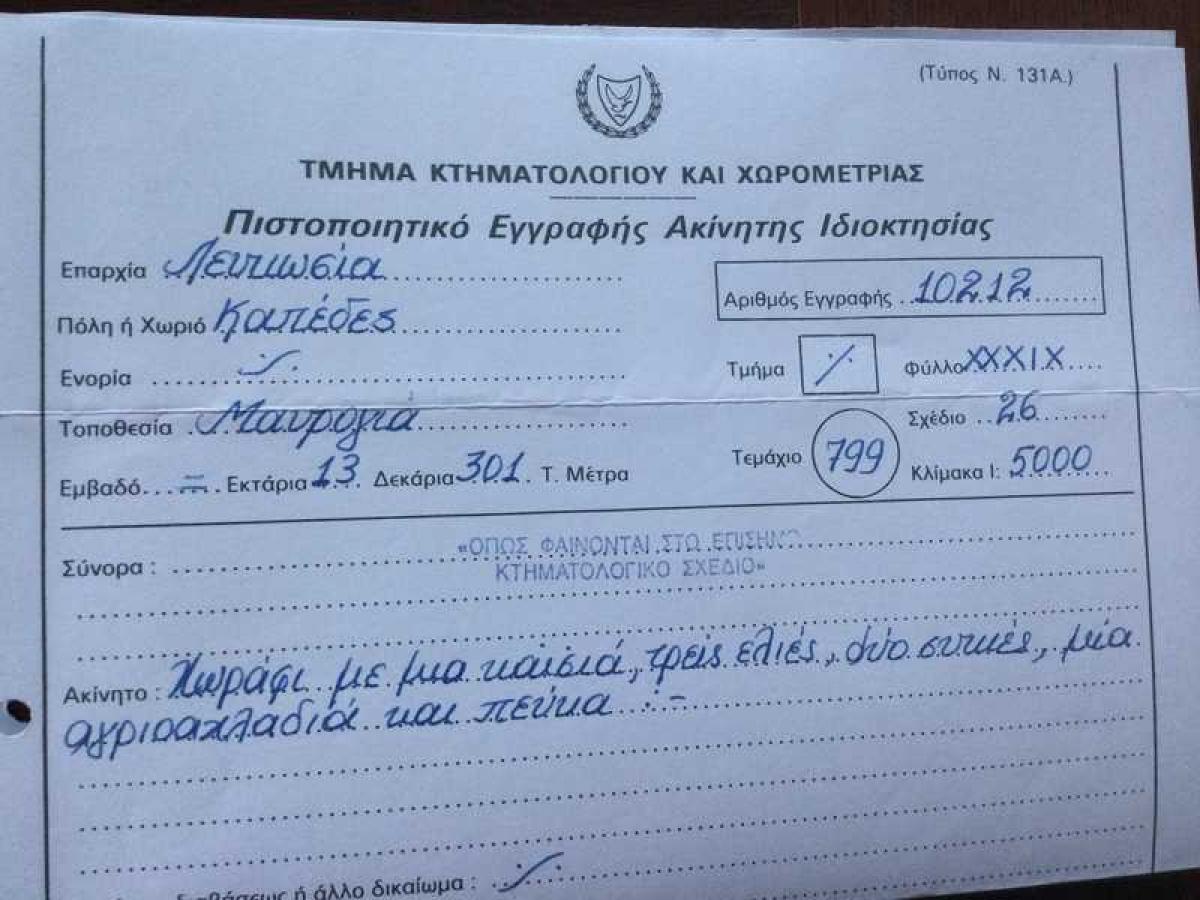 (Τύπος Ν. 131Α.)
ΤΜΗΜΑ ΚΤΗΜΑΤΟΛΟΓΙΟΥ ΚΑΙ ΧΩΡΟΜΕΤΡΙΑΣ
Πιστοποιητικό Εγγραφής Ακίνητης Ιδιοκτησίας
Επαρχία Λευκωσία
Αριθμός Εγγραφής 10212
Πόλη ή Χωριό Καπέδες
Ενορία ·/·
Τμήμα ·/· Φύλλο XXXIX
Τοποθεσία Μαυρογιά
Σχέδιο 26
Εμβαδό Εκτάρια 13 Δεκάρια 301 Τ. Μέτρα
Τεμάχιο 799 Κλίμακα Ι: 5000
Σύνορα : «ΟΠΩΣ ΦΑΙΝΟΝΤΑΙ ΣΤΟ ΕΠΙΣΗΜΟ
ΚΤΗΜΑΤΟΛΟΓΙΚΟ ΣΧΕΔΙΟ»
Ακίνητο : Χωράφι με μια καισιά, τρείς ελιές, δύο συκιές, μία
αγριοαχλαδιά και πεύκα . : -
διαβάσεως ή άλλο δικαίωμα : ·/·